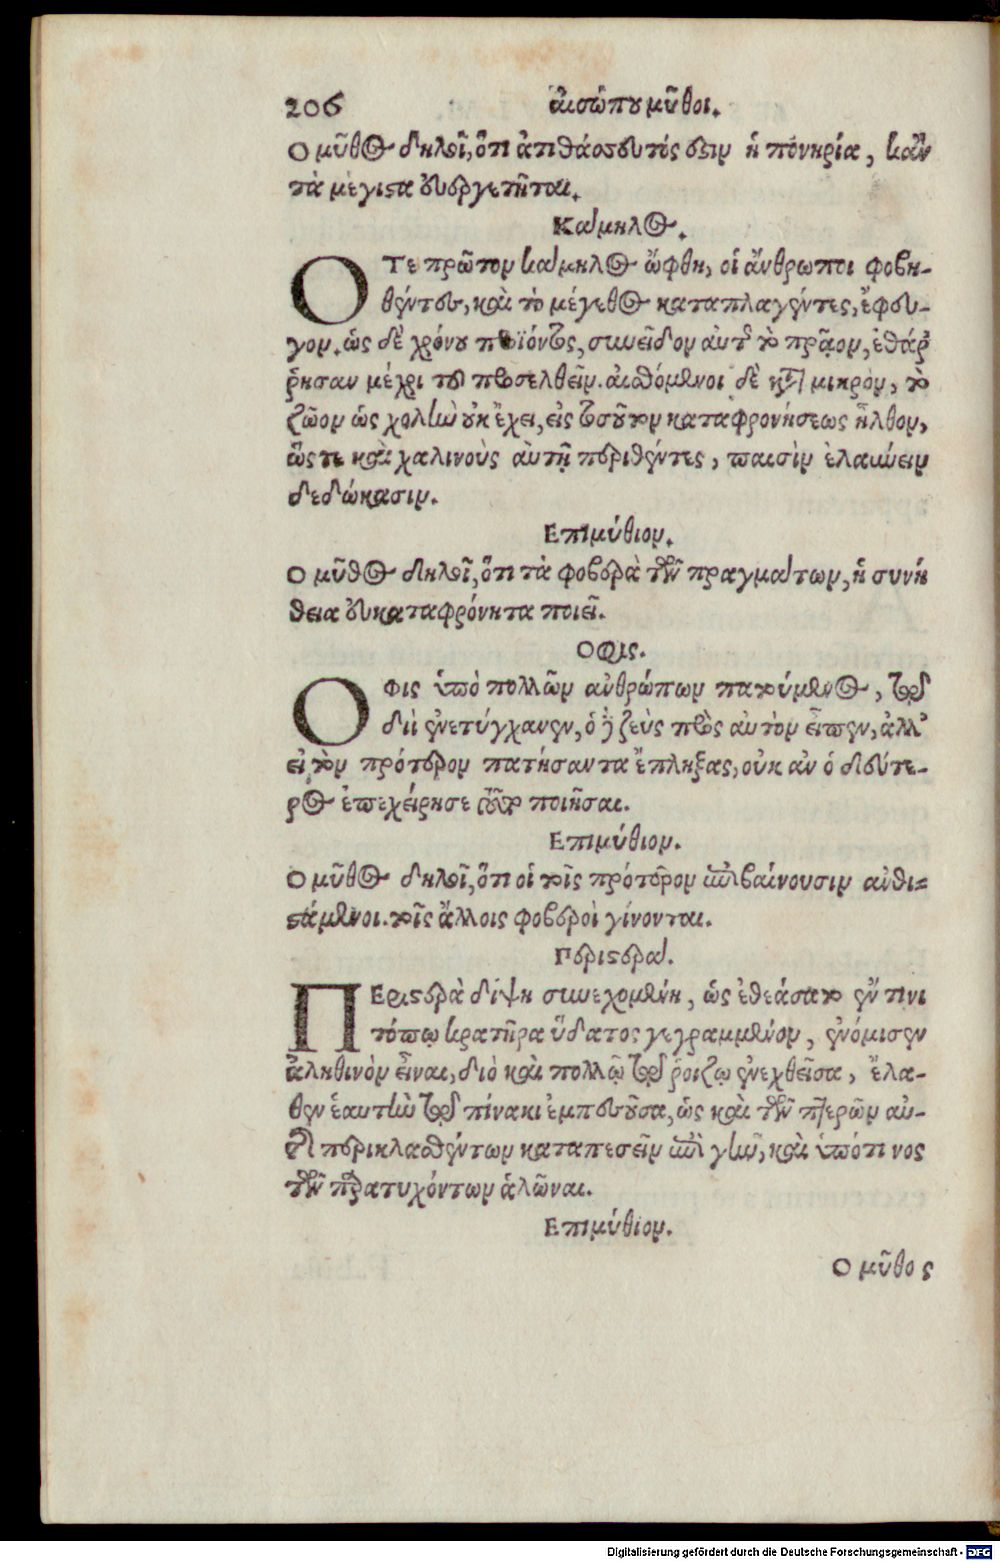 206 αἰσώπου μῦθοι.
Ο μῦθος δηλοῖ, ὅτι ἀτιθάσσευτός ἐστιν ἡ πονηρία, κἂν
τὰ μέγιστα εὐεργετῆται.
Κάμηλος.
ΟΤε πρῶτον κάμηλος ὤφθη, οἱ ἄνθρωποι φοβη-
θέντες, καὶ τὸ μέγεθος καταπλαγέντες, ἔφευ-
γον. ὡς δὲ χρόνου προϊόντος, συνεῖδον αὐτῆς τὸ πρᾷον, ἐθάρ
ῥησαν μέχρι τοῦ προσελθεῖν. αἰσθόμενοι δὲ κατὰ μικρὸν, τὸ
ζῶον ὡς χολὴν οὐκ ἔχει, εἰς τοσοῦτον καταφρονήσεως ἦλθον,
ὥς τε καὶ χαλινοὺς αὐτῇ περιθέντες, παισὶν ἐλαύνειν
δεδώκασιν.
Επιμύθιον.
Ο μῦθος δηλοῖ, ὅτι τὰ φοβερὰ τῶν πραγμάτων, ἡ συνή
θεια εὐκαταφρόνητα ποιεῖ.
Οφις.
ΟΦις ὑπὸ πολλῶν ἀνθρώπων πατούμενος, τῷ
διὶ ἐνετύγχανεν, ὁ δὲ ζεὺς πρὸς αὐτὸν εἶπεν, ἀλλ'
εἰ τὸν πρότερον πατήσαντα ἔπληξας, οὐκ ἂν ὁ δεύτε-
ρος ἐπεχείρησε τοῦτο ποιῆσαι.
Επιμύθιον.
Ο μῦθος δηλοῖ, ὅτι οἱ τοῖς πρότερον ἐπιβαίνουσιν ἀνθι-
στάμενοι. τοῖς ἄλλοις φοβεροὶ γίνονται.
Περιστερά.
ΠΕριστερὰ δίψῃ συνεχομένη, ὡς ἐθεάσατο ἔν τινι
τόπῳ κρατῆρα ὕδατος γεγραμμένον, ἐνόμισεν
ἀληθινὸν εἶναι, διὸ καὶ πολλῷ τῷ ῥοίζῳ ἐνεχθεῖσα, ἔλα-
θεν ἑαυτὴν τῷ πίνακι ἐμπεσοῦσα, ὡς καὶ τῶν πτερῶν αὐ-
τῆς περικλασθέντων καταπεσεῖν ἐπὶ γῆν, καὶ ὑπό τινος
τῶν παρατυχόντων ἁλῶναι.
Επιμύθιον.
Ο μῦθος
Digitalisierung gefördert durch die Deutsche Forschungsgemeinschaft - DFG